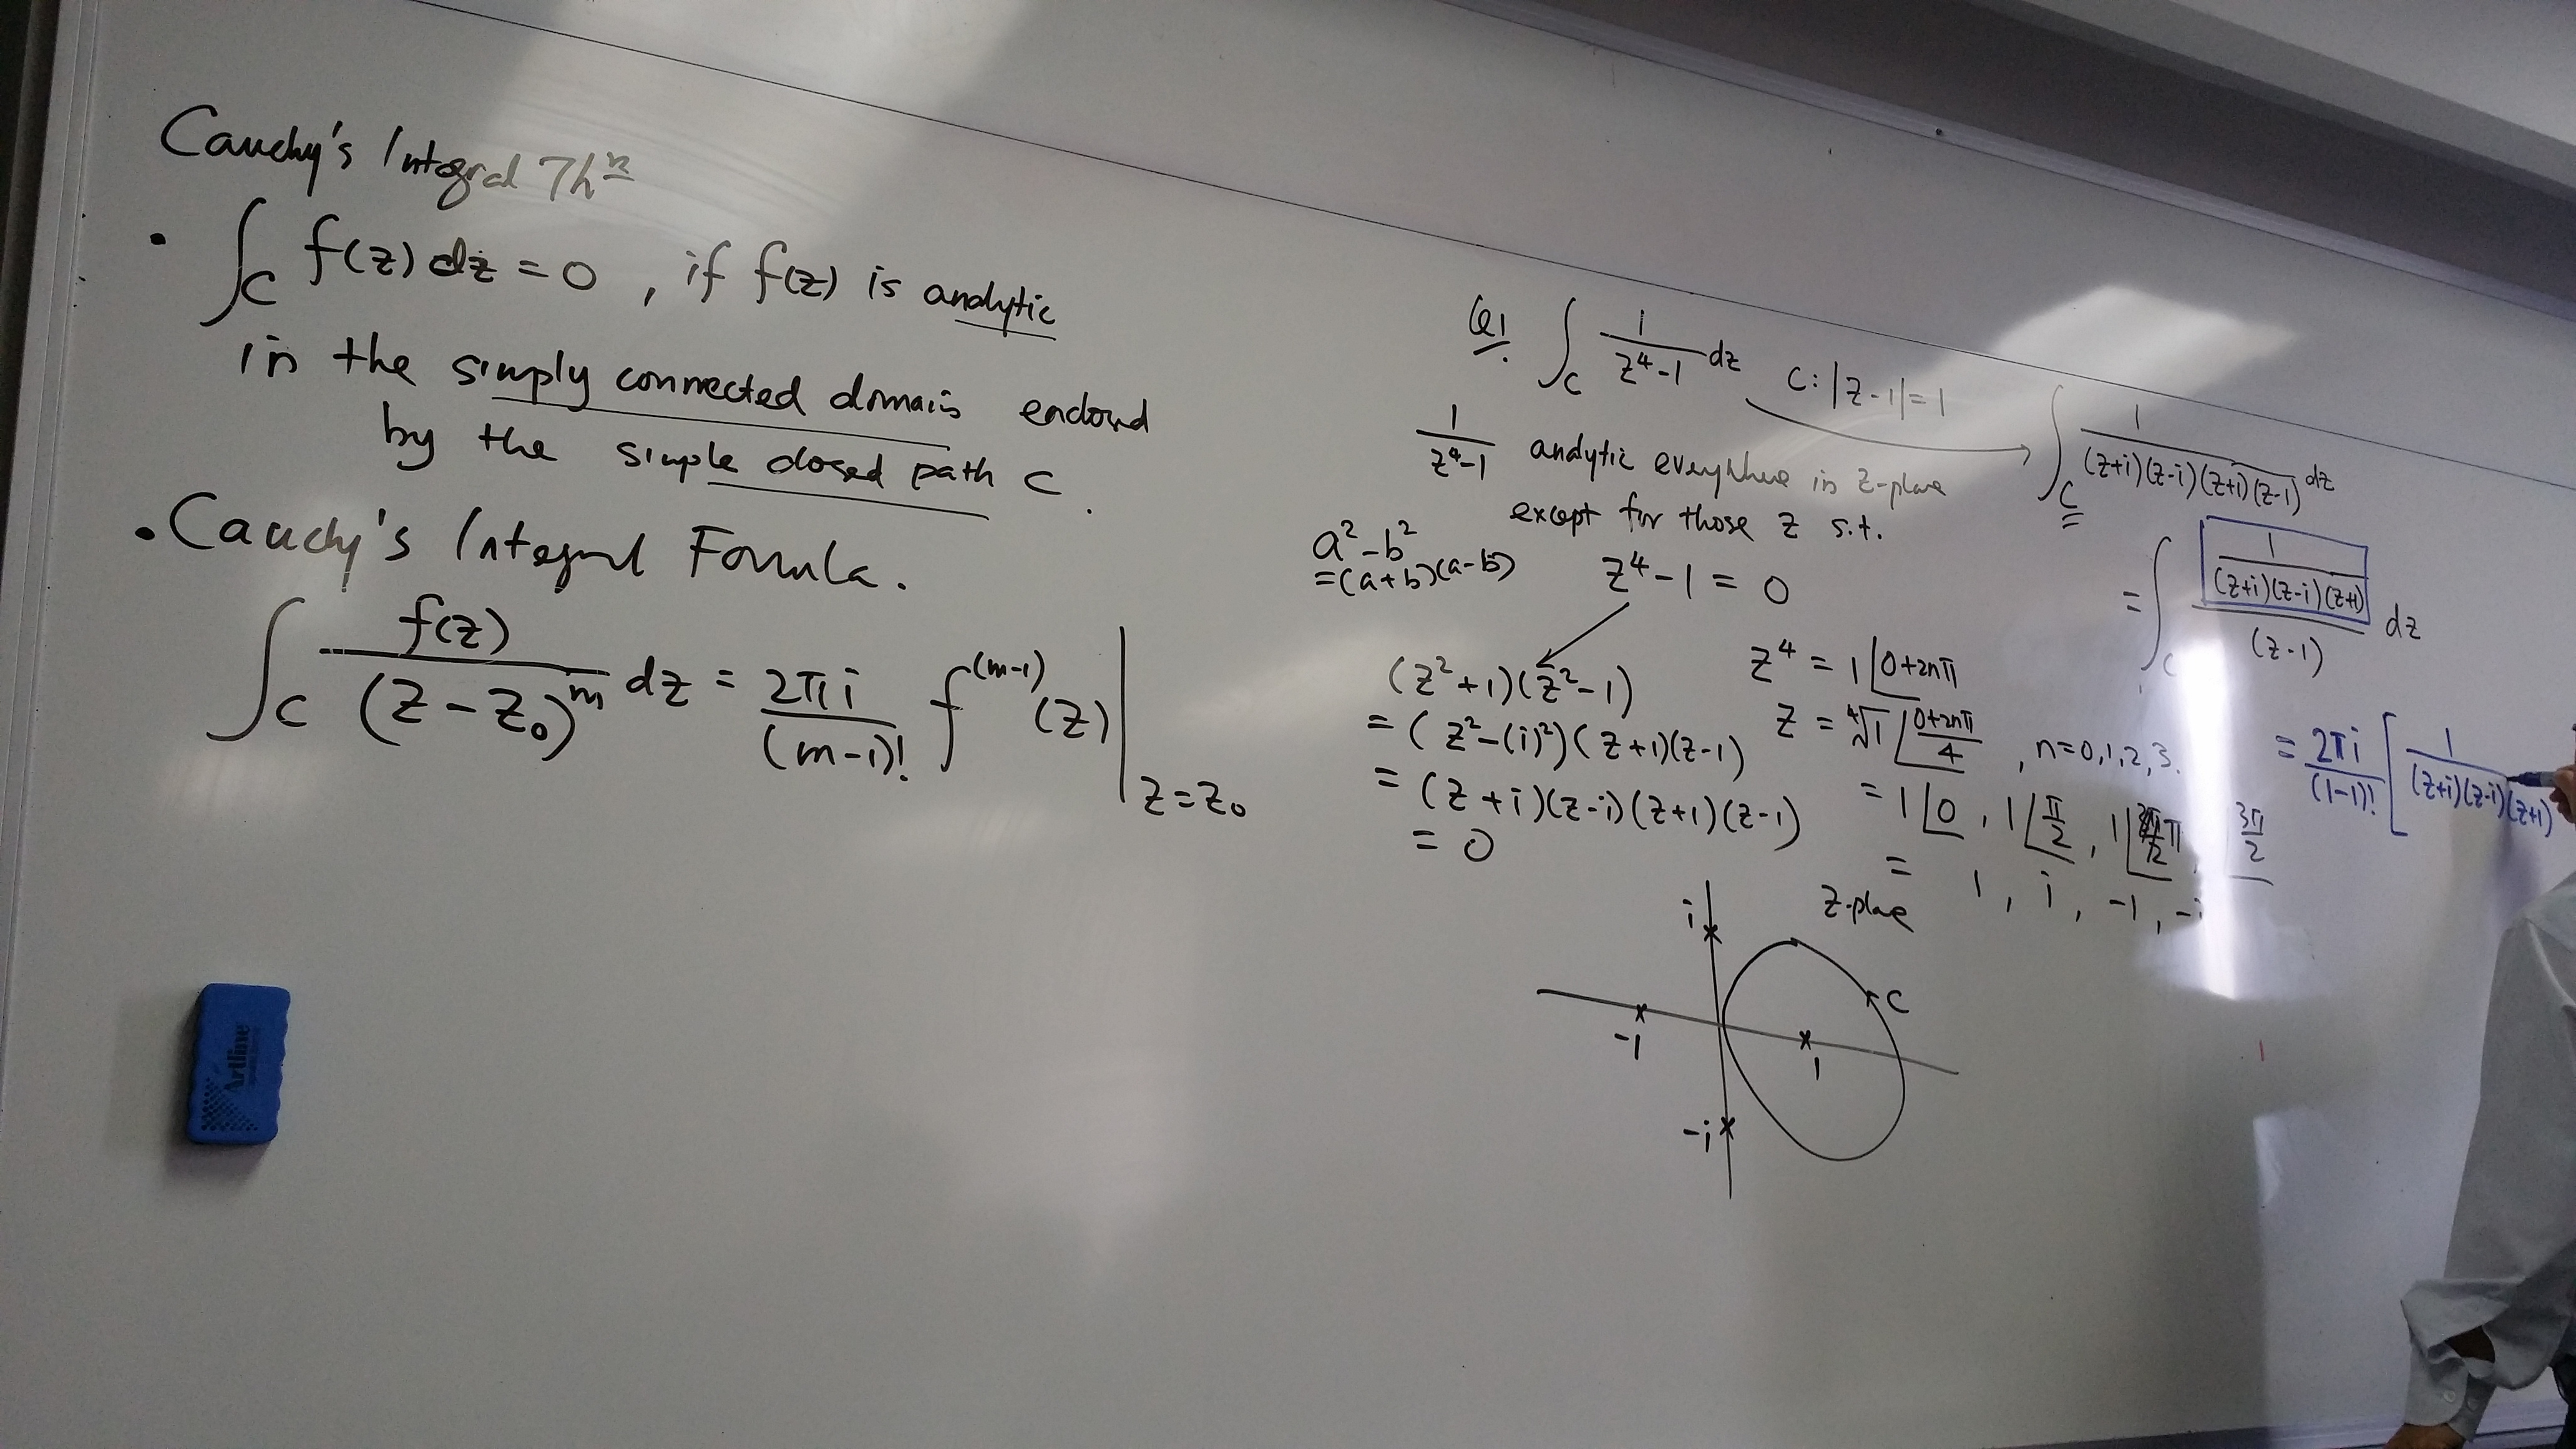 Cauchy's Integral Thm
• ∫_C f(z) dz = 0 , if f(z) is analytic
in the simply connected domain enclosed
by the simple closed path C .
• Cauchy's Integral Formula .
∫_C f(z)/(z-z₀)^m dz = 2πi/(m-1)! f^(m-1)(z) |_{z=z₀}
Q1. ∫_C 1/(z⁴-1) dz C: |z-1|=1
1/(z⁴-1) analytic everywhere in z-plane
except for those z s.t.
a²-b²
=(a+b)(a-b)
z⁴-1 = 0
(z²+1)(z²-1)
= (z²-(i)²)(z+1)(z-1)
= (z+i)(z-i)(z+1)(z-1)
= 0
z⁴ = 1∠0+2nπ
z = ⁴√1 ∠(0+2nπ)/4 , n=0,1,2,3.
= 1∠0 , 1∠π/2 , 1∠π , 3π/2
= 1 , i , -1 , -i
∫_C 1/((z+i)(z-i)(z+1)(z-1)) dz
= ∫_C [1/((z+i)(z-i)(z+1))]/(z-1) dz
= 2πi/(1-1)! [ 1/((z+i)(z-i)(z+1)
z-plane
i
C
-1
1
-i
Artline